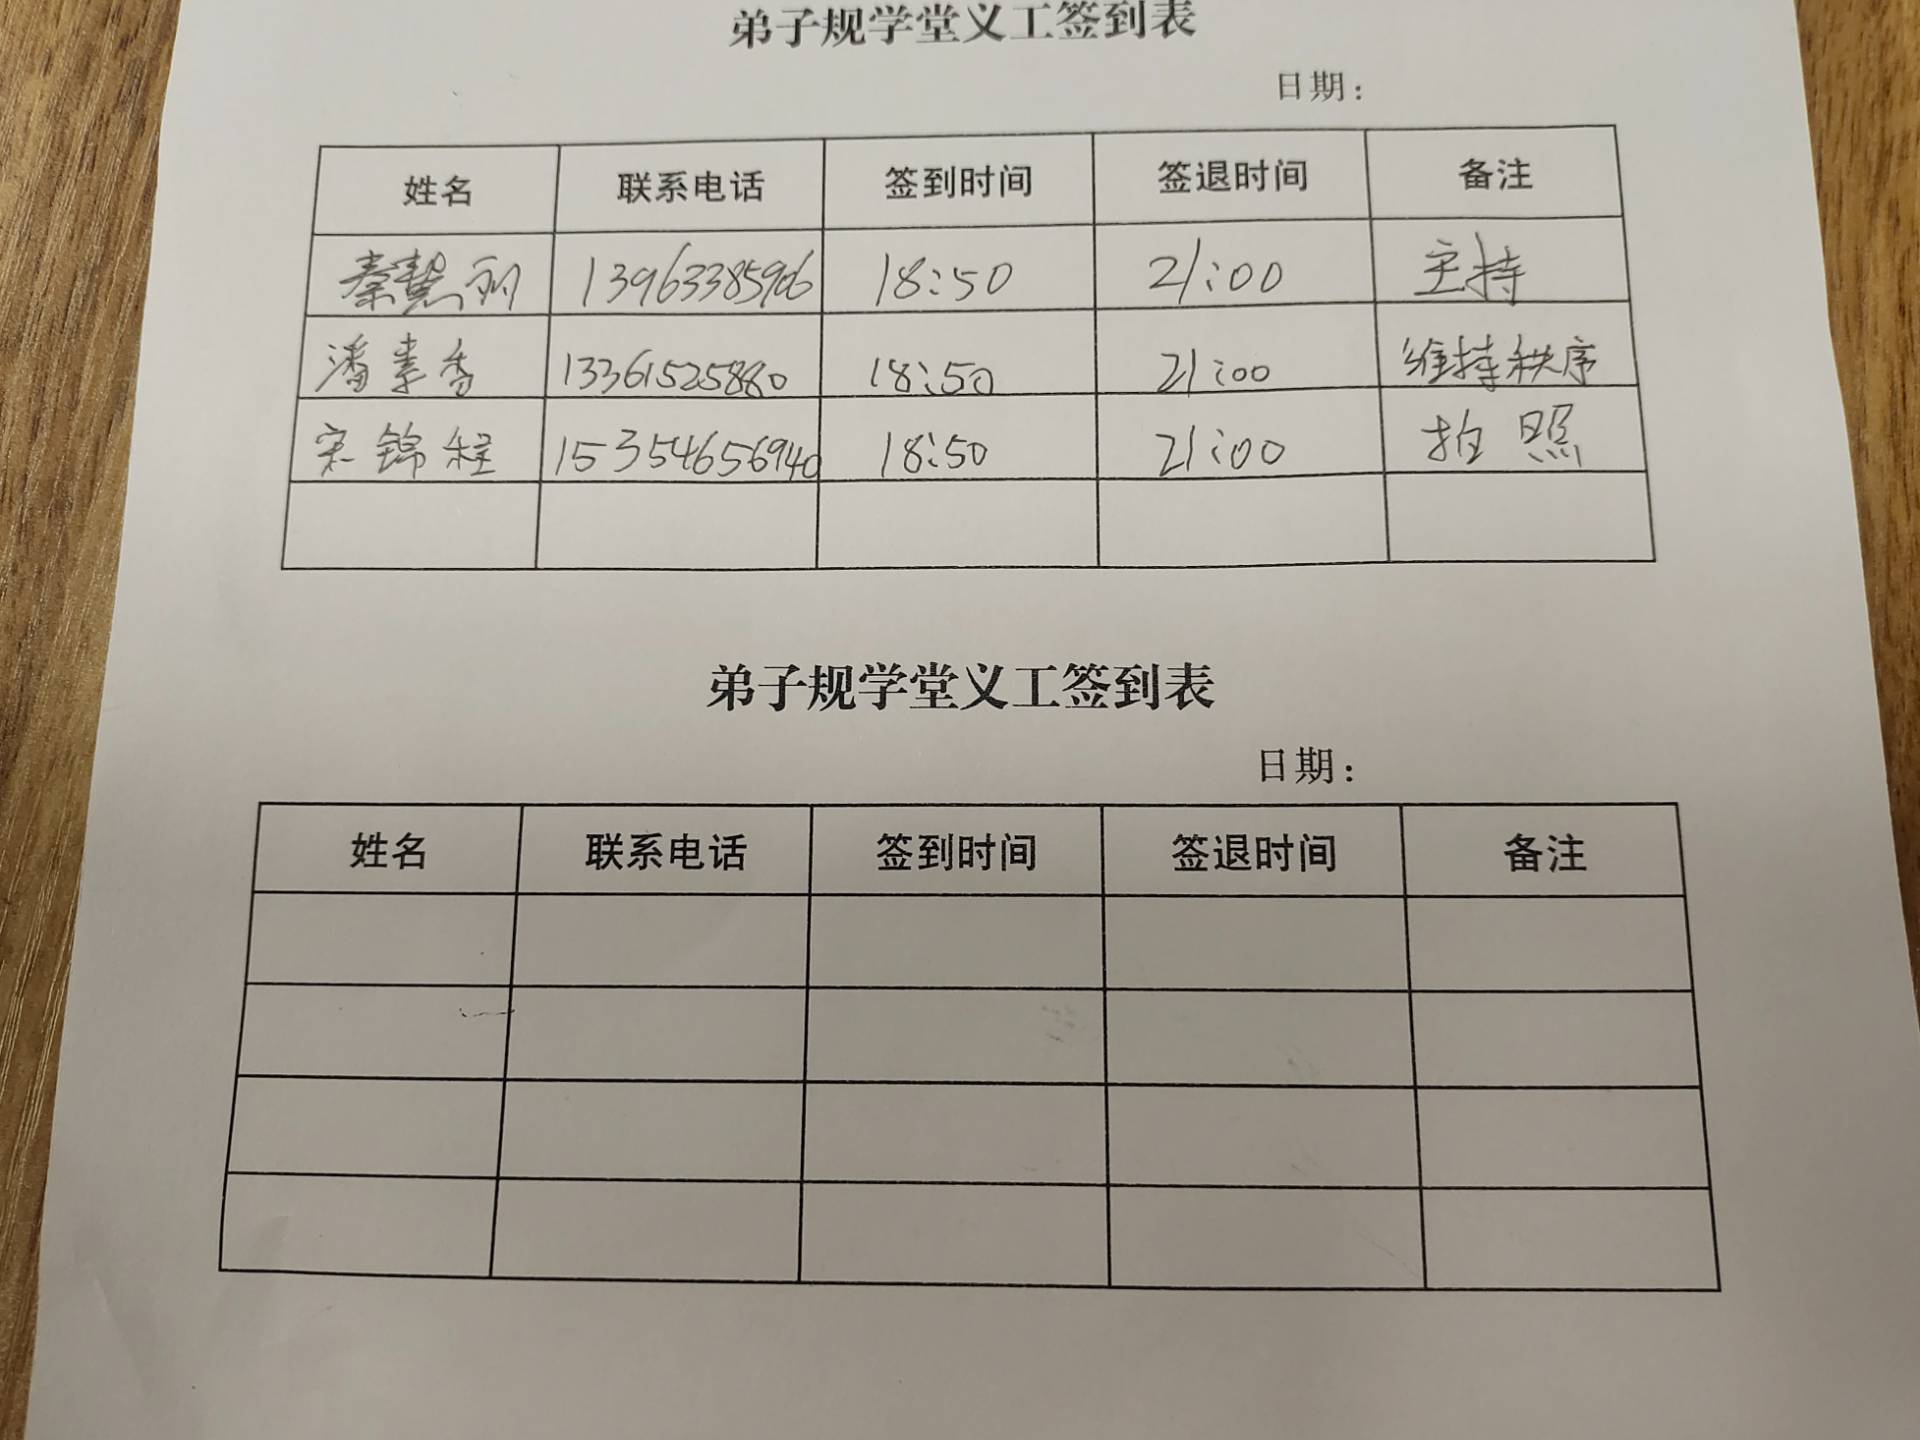 弟子规学堂义工签到表
日期：
姓名 联系电话 签到时间 签退时间 备注
秦慧丽 13963385906 18:50 21:00 主持
潘素香 13361525880 18:50 21:00 维持秩序
宋锦程 15354656940 18:50 21:00 拍照
弟子规学堂义工签到表
日期：
姓名 联系电话 签到时间 签退时间 备注